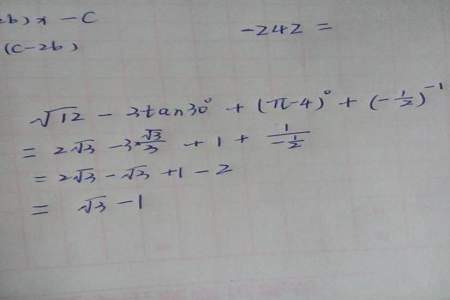 2b) x - C
-242 =
(C-2b)
√12 - 3tan30° + (π-4)° + (-1/2)^-1
= 2√3 - 3·√3/3 + 1 + 1/(-1/2)
= 2√3 - √3 + 1 - 2
= √3 - 1